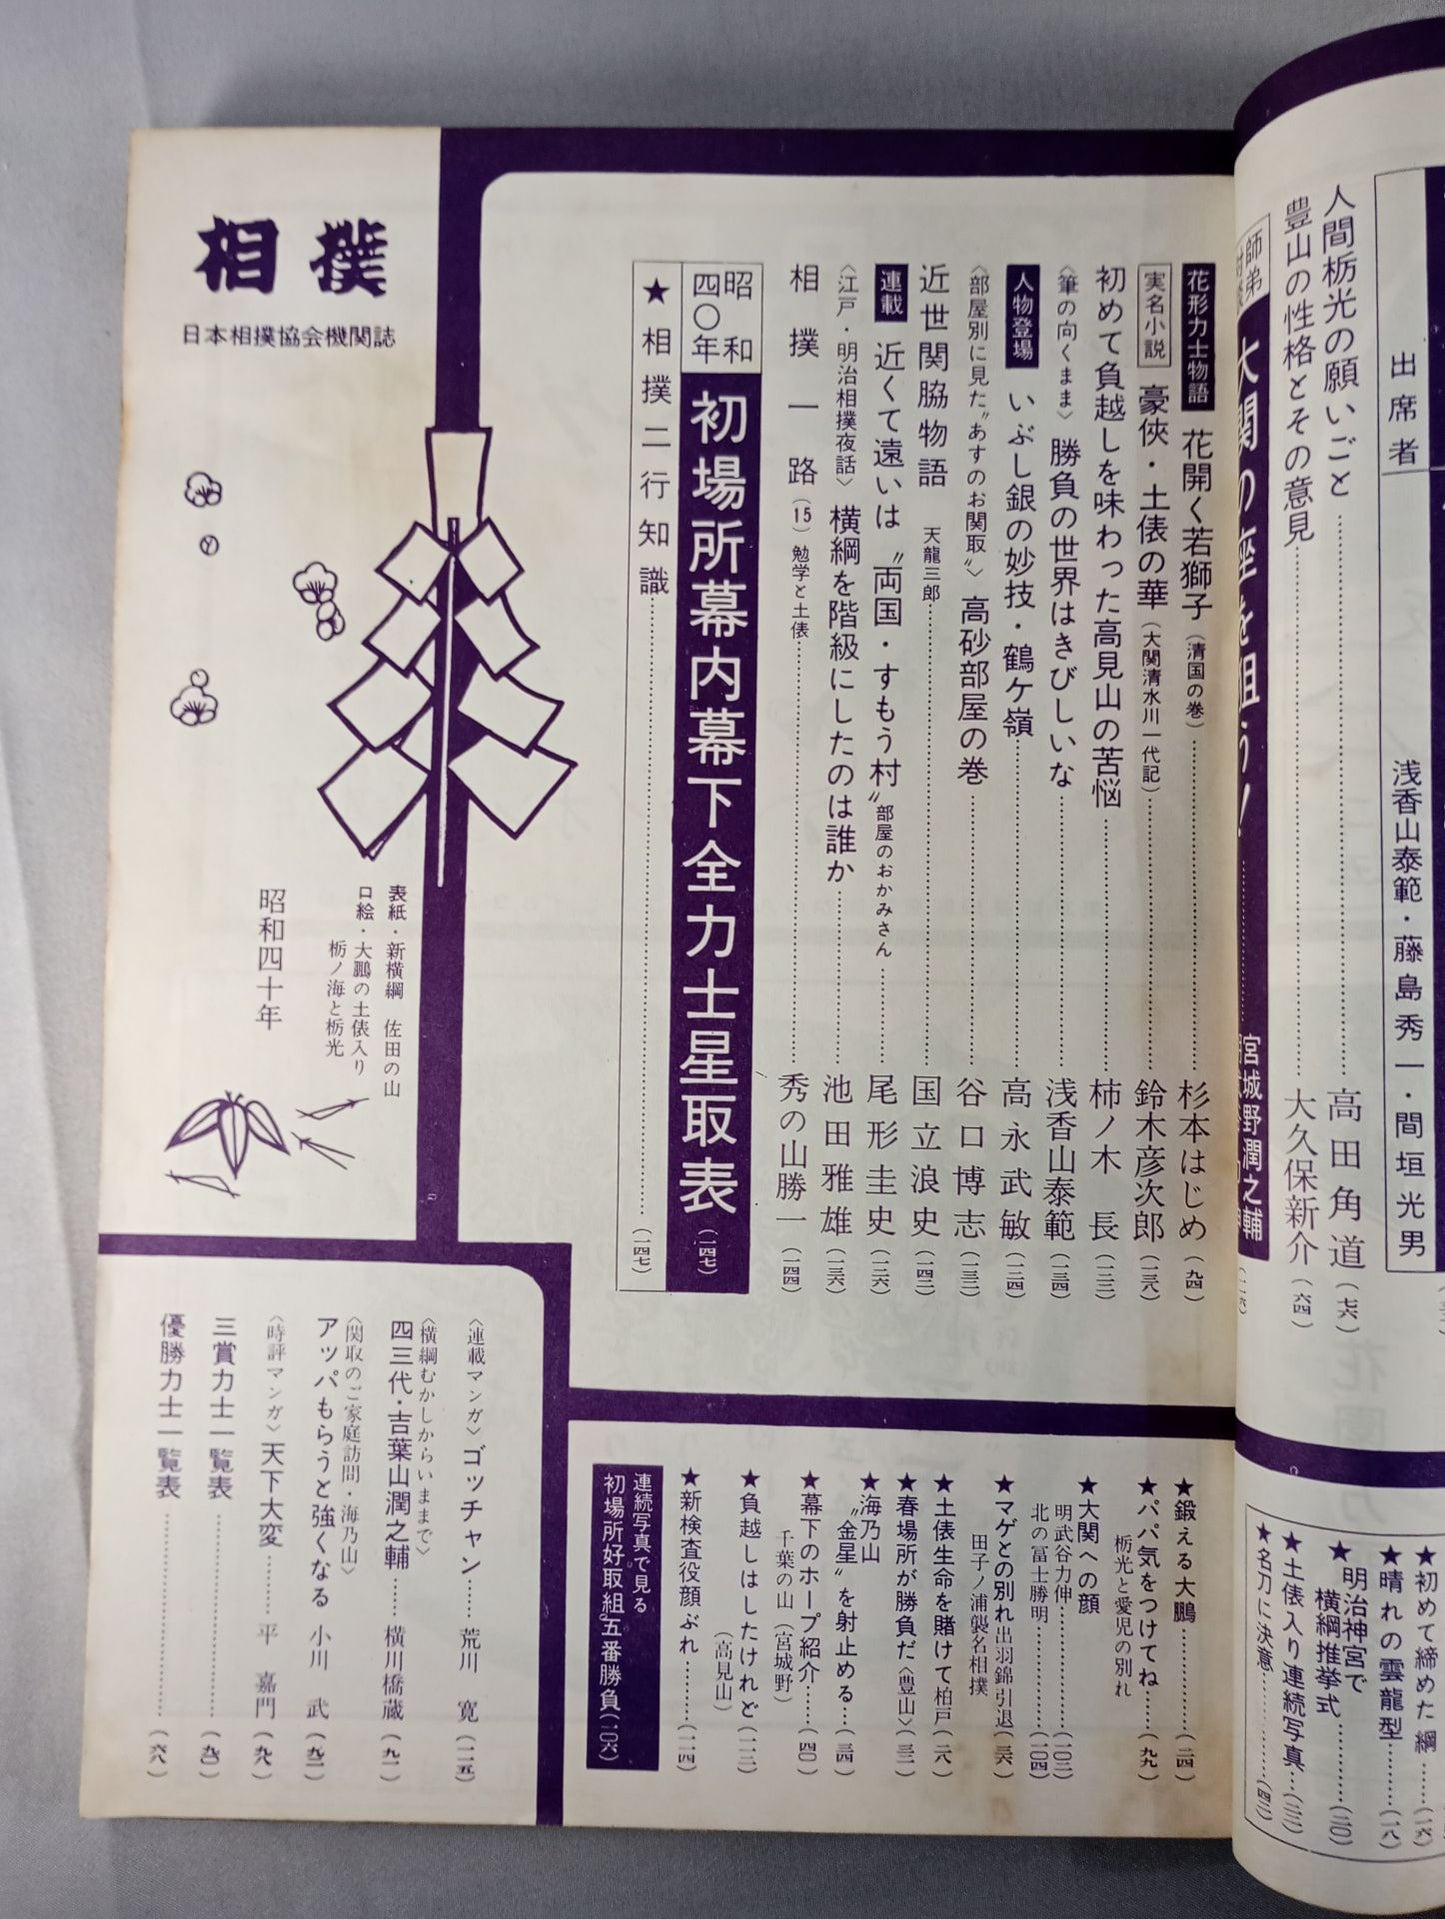 出席者
浅香山泰範・藤島秀一・間垣光男
人間栃光の願いごと……高田角道(七六)
豊山の性格とその意見……大久保新介(六四)
師弟
大関の座を狙う!……宮城野潤之輔
(一一六)
花形力士物語 花開く若獅子(清国の巻)……杉本はじめ(九四)
実名小説 豪俠・土俵の華(大関清水川一代記)……鈴木彦次郎(一三八)
初めて負越しを味わった高見山の苦悩……柿ノ木 長(一三二)
〈筆の向くまま〉勝負の世界はきびしいな……浅香山泰範(一三四)
人物登場 いぶし銀の妙技・鶴ケ嶺……高永武敏(一二四)
〈部屋別に見た〝あすのお関取〟〉高砂部屋の巻……谷口博志(一三三)
近世関脇物語 天龍三郎……国立浪史(一四二)
連載 近くて遠いは〝両国・すもう村〟部屋のおかみさん……尾形圭史(一二六)
〈江戸・明治相撲夜話〉横綱を階級にしたのは誰か……池田雅雄(一三六)
相撲一路(15)勉学と土俵……秀の山勝一(一四四)
昭和四〇年 初場所幕内幕下全力士星取表(一四七)
★相撲二行知識……(一四七)
相撲
日本相撲協会機関誌
表紙・新横綱 佐田の山
口絵・大鵬の土俵入り
栃ノ海と栃光
昭和四十年
★初めて締めた綱……(一六)
★晴れの雲龍型……(一八)
★明治神宮で
横綱推挙式……(二〇)
★土俵入り連続写真…(二二)
★名刀に決意……(四二)
★鍛える大鵬……(二四)
★パパ気をつけてね……(九九)
栃光と愛児の別れ
★大関への顔
明武谷力伸……(一〇二)
北の冨士勝明……(一〇四)
★マゲとの別れ出羽錦引退(三六)
田子ノ浦襲名相撲
★土俵生命を賭けて柏戸(二八)
★春場所が勝負だ〈豊山〉(三二)
★海乃山
〝金星〟を射止める…(三四)
★幕下のホープ紹介……(四〇)
千葉の山(宮城野)
★負越しはしたけれど(一一二)
(高見山)
★新検査役顔ぶれ……(一一四)
連続写真で見る
初場所好取組五番勝負(一〇六)
〈連載マンガ〉ゴッチャン……荒川 寛(一二五)
〈横綱むかしからいままで〉
四三代・吉葉山潤之輔……横川橋蔵(九一)
〈関取のご家庭訪問・海乃山〉
アッパもらうと強くなる 小川 武(九二)
〈時評マンガ〉天下大変……平 嘉門(九八)
三賞力士一覧表……(九〇)
優勝力士一覧表……(六八)